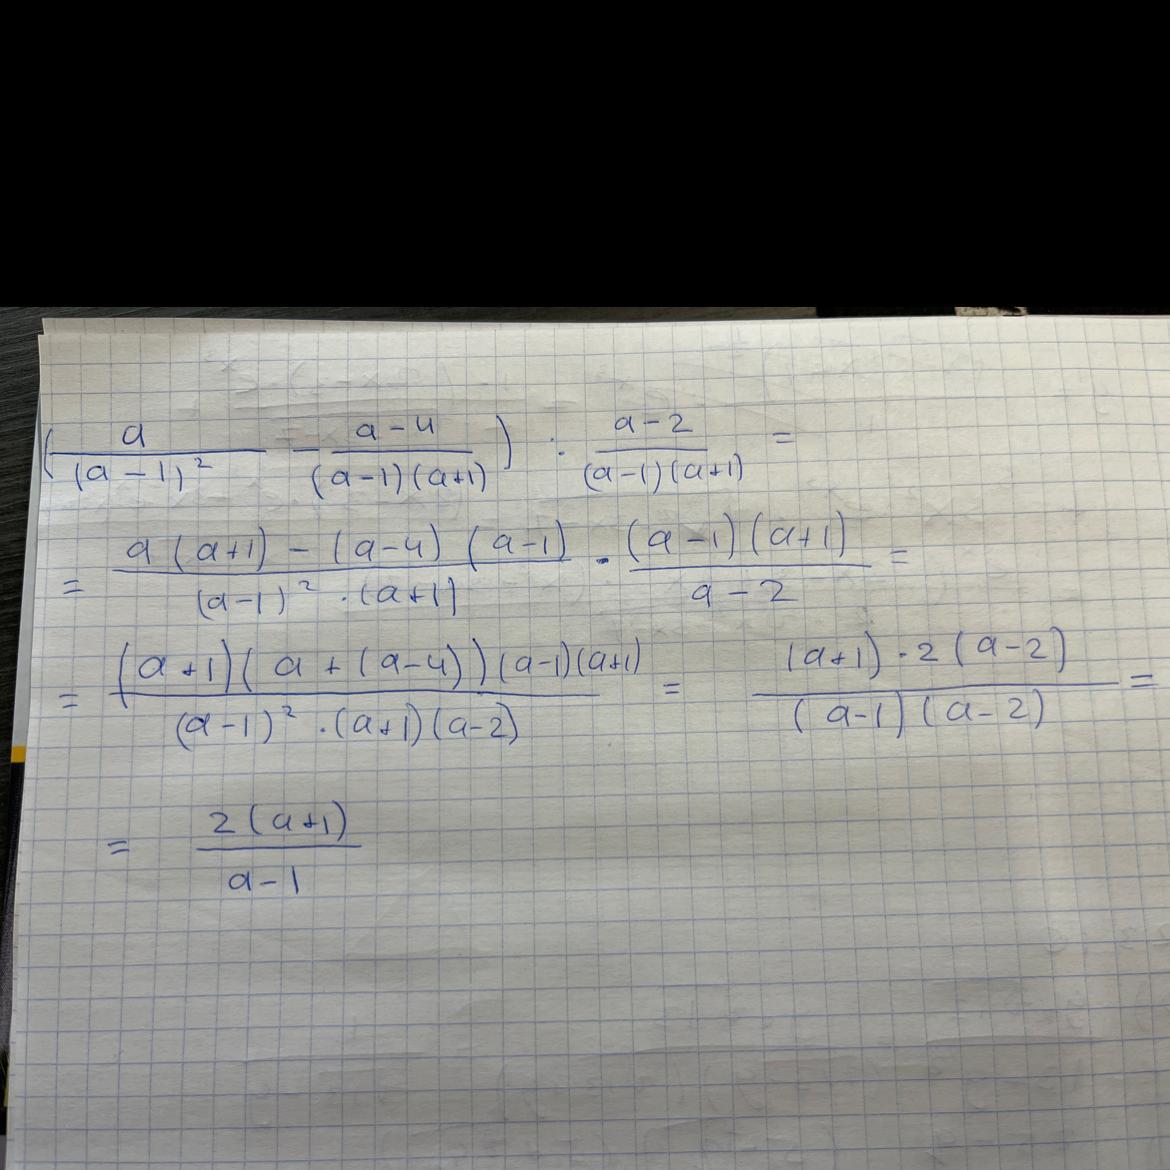 (a/(a-1)² - (a-4)/((a-1)(a+1))) : (a-2)/((a-1)(a+1)) =
= (a(a+1) - (a-4)(a-1))/((a-1)² · (a+1)) · ((a-1)(a+1))/(a-2) =
= ((a+1)(a + (a-4))(a-1)(a+1))/((a-1)² · (a+1)(a-2)) = ((a+1) · 2(a-2))/((a-1)(a-2)) =
= (2(a+1))/(a-1)